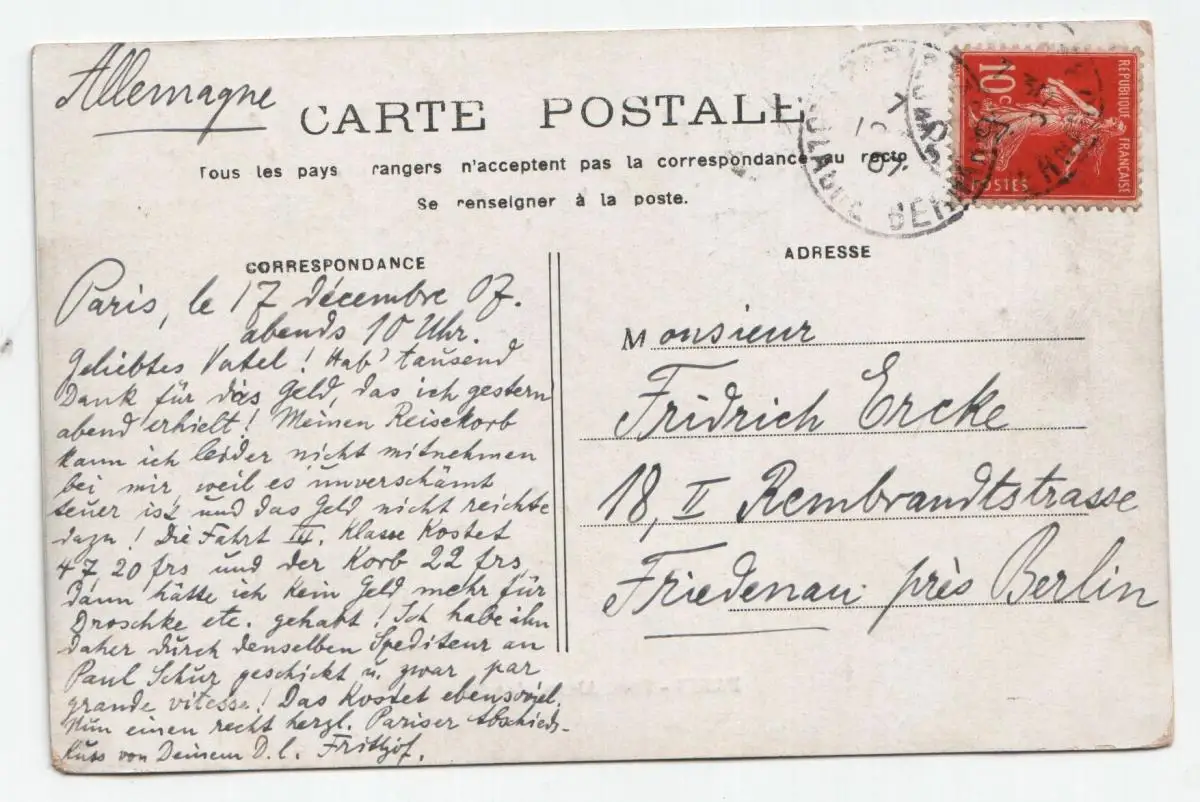 Allemagne
CARTE POSTALE
Tous les pays rangers n'acceptent pas la correspondance au recto
Se renseigner à la poste.
10c
RÉPUBLIQUE FRANÇAISE
POSTES
07
CORRESPONDANCE
Paris, le 17 décembre 07.
abends 10 Uhr.
Geliebtes Vatel! Hab' tausend
Dank für das Geld, das ich gestern
abend erhielt! Meinen Reisekorb
kann ich leider nicht mitnehmen
bei mir, weil es unverschämt
teuer ist und das Geld nicht reichte
dazu! Die Fahrt III. Klasse kostet
47,20 frs und der Korb 22 frs,
dann hätte ich kein Geld mehr für
Droschke etc. gehabt! Ich habe ihn
daher durch denselben Spediteur an
Paul Schur geschickt u. zwar par
grande vitesse! Das kostet ebensoviel.
Nun einen recht herzl. Pariser Abschieds-
kuss von Deinem D. l. Frithjof.
ADRESSE
Monsieur
Fridrich Ercke
18, II Rembrandtstrasse
Friedenau près Berlin